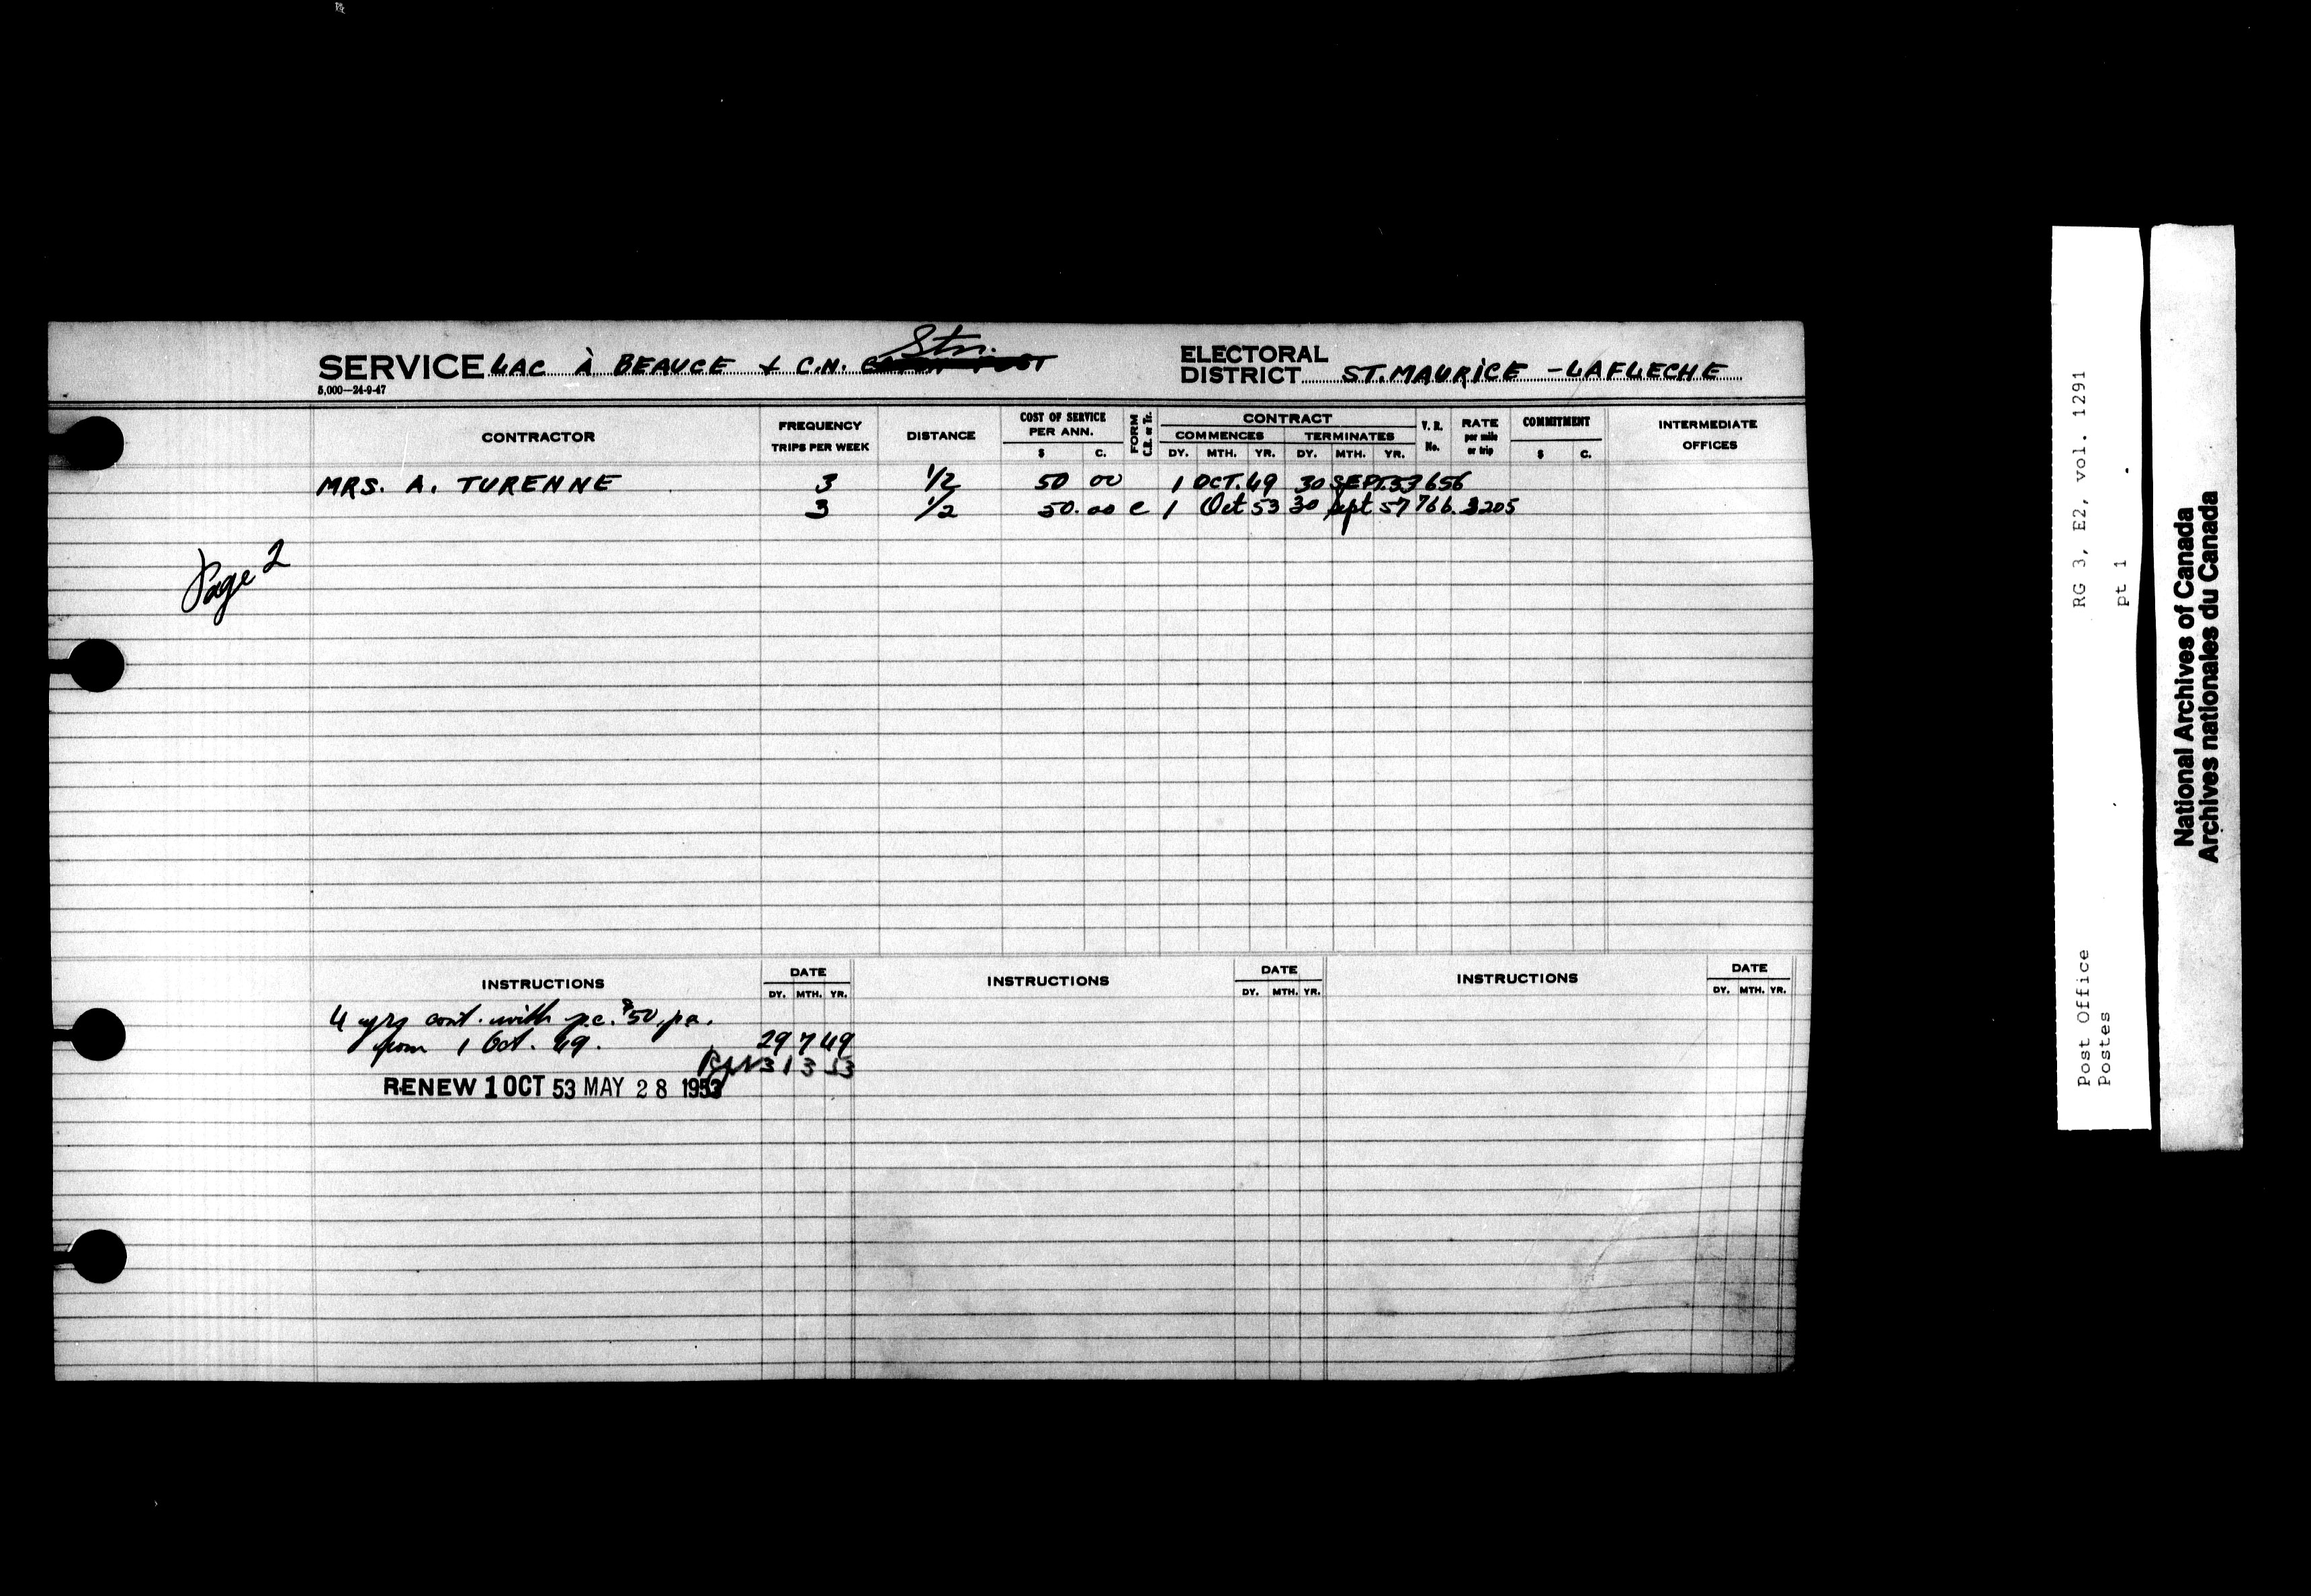 SERVICE LAC À BEAUCE & C.N. Stn.
5,000—24-9-47
ELECTORAL DISTRICT ST. MAURICE - LAFLECHE
CONTRACTOR FREQUENCY TRIPS PER WEEK DISTANCE COST OF SERVICE PER ANN. $ C. FORM C.R. or Tr. CONTRACT COMMENCES DY. MTH. YR. TERMINATES DY. MTH. YR. V. R. No. RATE per mile or trip COMMITMENT $ C. INTERMEDIATE OFFICES
MRS. A. TURENNE 3 1/2 50 00 1 OCT. 49 30 SEPT. 53 656
3 1/2 50.00 C 1 Oct 53 30 Sept 57 766 .3205
Page 2
INSTRUCTIONS DATE DY. MTH. YR. INSTRUCTIONS DATE DY. MTH. YR. INSTRUCTIONS DATE DY. MTH. YR.
4 yrs cont. with p.c. $50. p.a.
from 1 Oct. 49. 29 7 49
31 3 53
RENEW 1 OCT 53 MAY 28 1953
RG 3, E2, vol. 1291
pt 1
Post Office
Postes
National Archives of Canada
Archives nationales du Canada